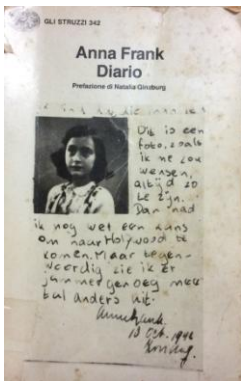 GLI STRUZZI 342
Anna Frank
Diario
Prefazione di Natalia Ginzburg
Dit is een
foto, zoals
ik me zou
wensen,
altijd zo
te zijn.
Dan had
ik nog wel een kans
om naar Holywood te
komen. Maar tegen-
woordig zie ik er
jammer genoeg meestal
anders uit.
Anne Frank.
10 Oct. 1942